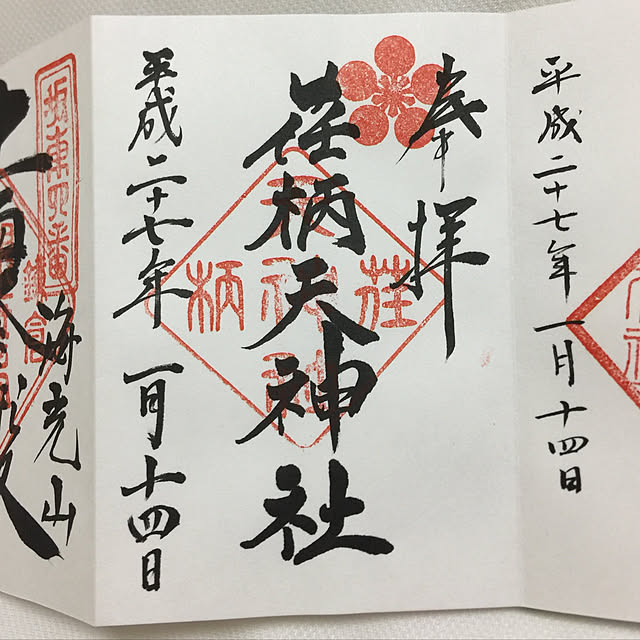 平成二十七年 一月十四日
奉拝
荏柄天神社
荏柄
平成二十七年 一月十四日
坂東四番
鎌倉
海光山